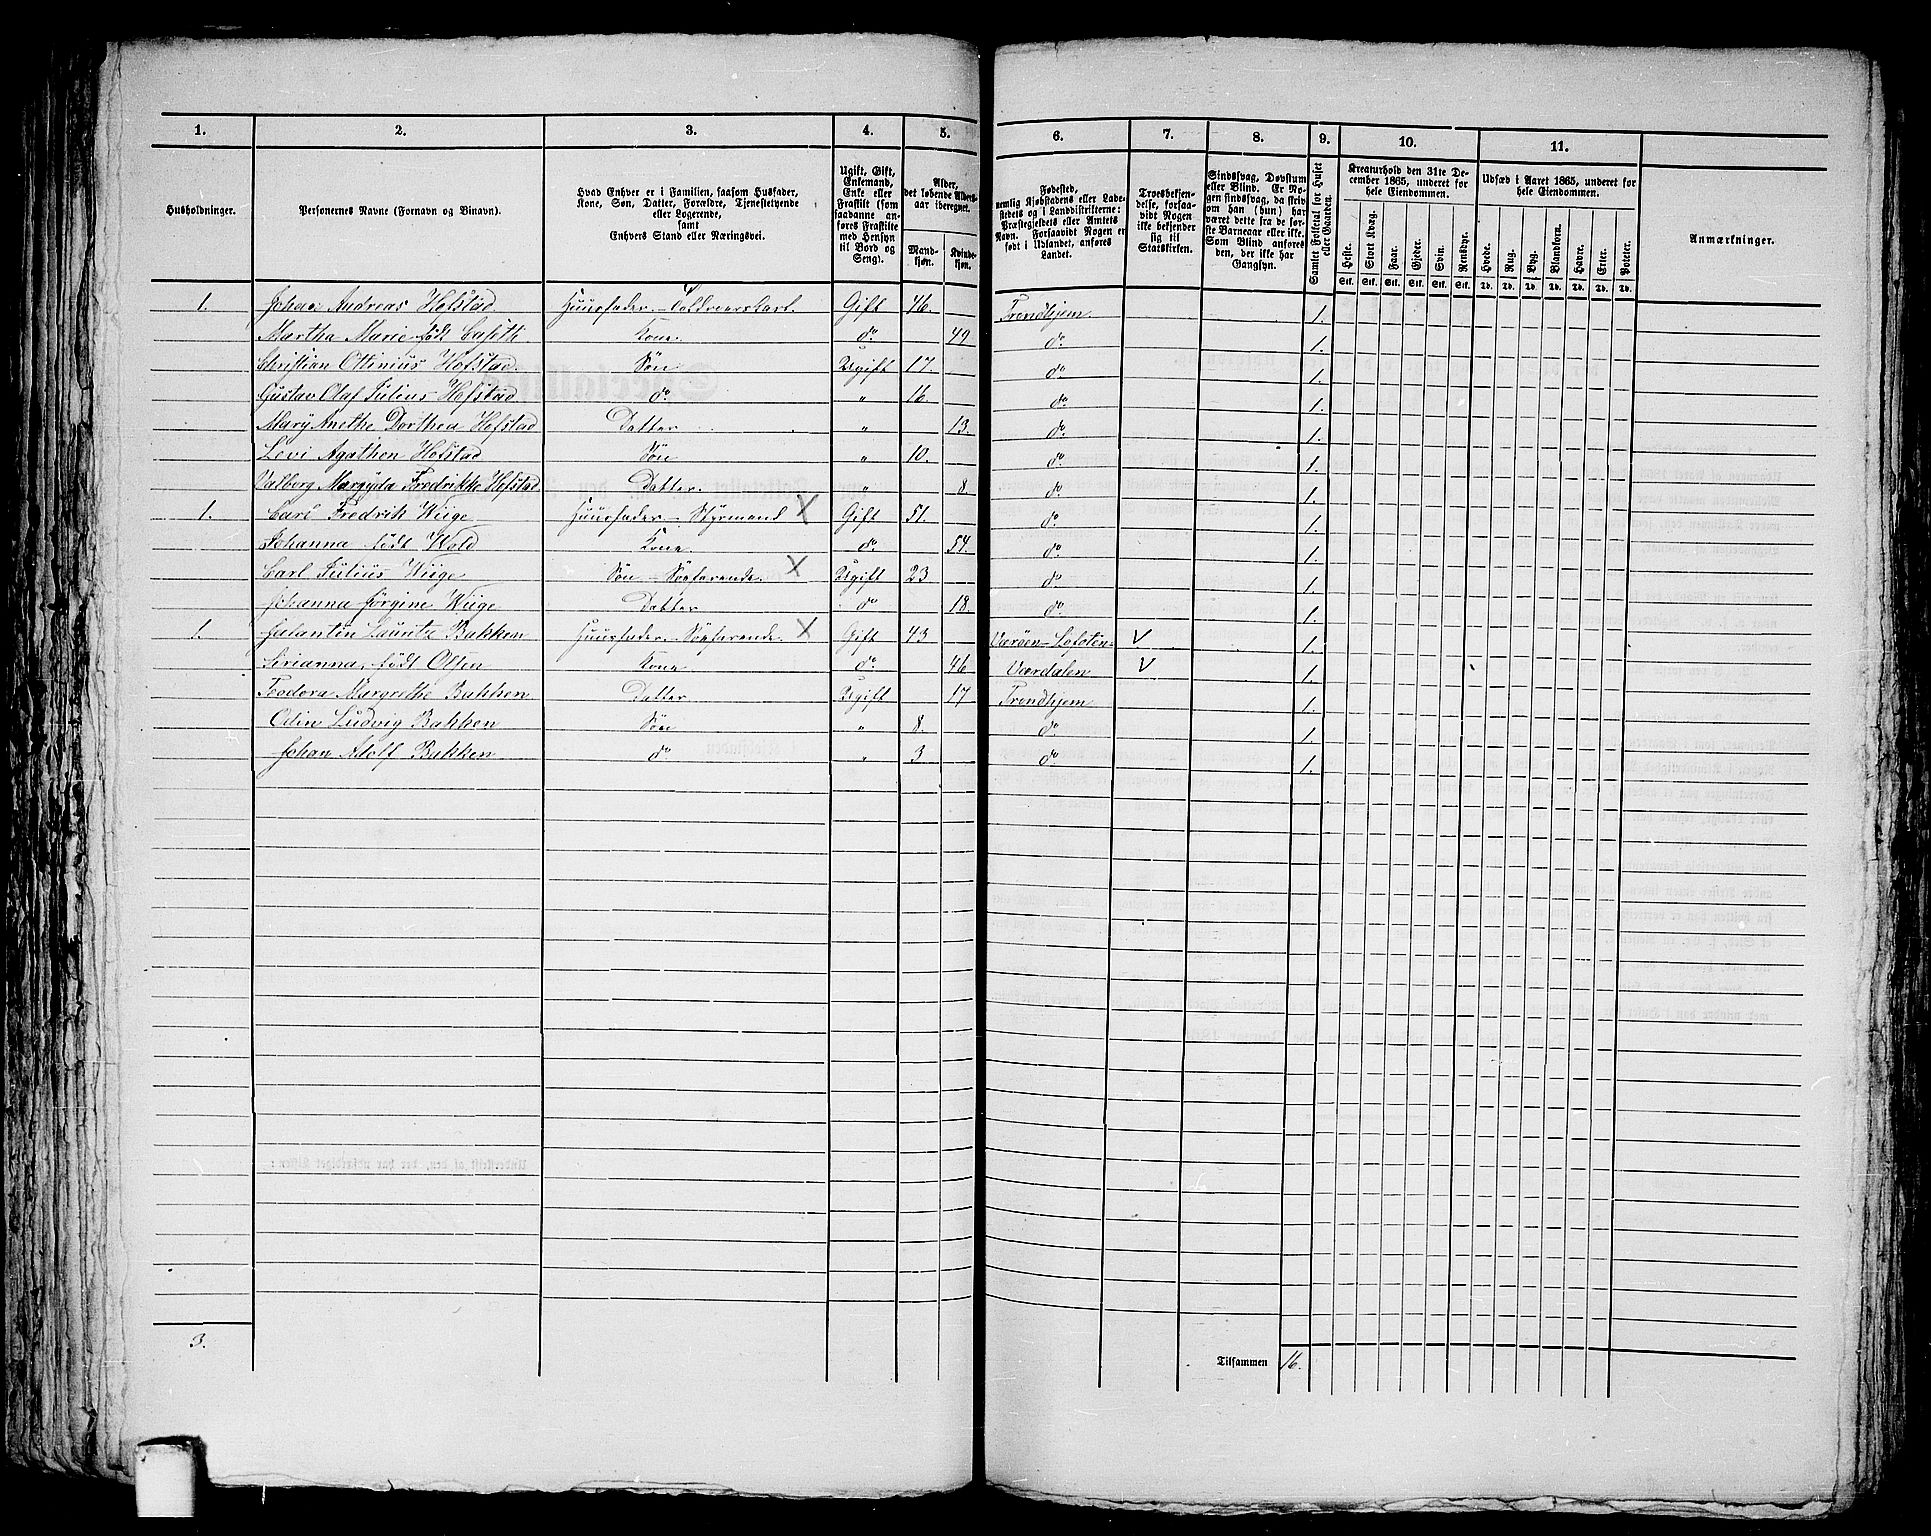 1. 2. 3. 4. 5. 6. 7. 8. 9. 10. 11.
Husholdninger.
Personernes Navne (Fornavn og Binavn).
Hvad Enhver er i Familien, saasom Husfader, Kone, Søn, Datter, Forældre, Tjenestetyende eller Logerende, samt Enhvers Stand eller Næringsvei.
Ugift, Gift, Enkemand, Enke eller Fraskilt (som saadanne anføres Fraskilte med Hensyn til Bord og Seng).
Alder, det løbende Alders-aar iberegnet.
Mand-kjøn. Kvinde-kjøn.
Fødested, nemlig Kjøbstadens eller Ladestedets og i Landdistrikterne: Præstegjeldets eller Amtets Navn. Forsaavidt Nogen er født i Udlandet, anføres Landet.
Troesbekjendelse, forsaavidt Nogen ikke bekjender sig til Statskirken.
Sindssvag, Døvstum eller Blind. Er Nogen sindssvag, da skrives om han (hun) har været dette fra de første Barneaar eller ikke. Som Blind anføres den, der ikke har Gangsyn.
Samlet Folketal for Huset eller Gaarden.
Kreaturhold den 31te December 1865, underet for hele Eiendommen.
Heste. Stort Kvæg. Faar. Gjeder. Svin. Rensdyr.
Stk. Stk. Stk. Stk. Stk. Stk.
Udsæd i Aaret 1865, underet for hele Eiendommen.
Hvede. Rug. Byg. Blandkorn. Havre. Erter. Poteter.
Td. Td. Td. Td. Td. Td. Td.
Anmærkninger.
1. Johan Andreas Hofstad Huusfader Gift 46. Trondhjem 1.
Martha Marie født Kone do. 49 do. 1.
Christian Ottinius Hofstad Søn Ugift 17. do. 1.
Gustav Olaf Julius Hofstad do. " 16. do. 1.
Mary Anethe Dorthea Hofstad Datter " 13. do. 1.
Levi Agathon Hofstad Søn " 10. do. 1.
Valborg Margyda Fredrikke Hofstad Datter. " 8. do. 1.
1. Carl Fredrik Wiige Huusfader - Styrmand X Gift 51. do. 1.
Johanna født Wold Kone do. 54. do. 1.
Carl Julius Wiige Søn - Søefarende. X Ugift 23 do. 1.
Johanna Jørgine Wiige Datter do. 18. do. 1.
1. Lauritz Bakken Huusfader - Søefarende. X Gift 43 Værøen - Lofoten V 1.
Sirianna, født Olsen Kone do. 46. Værdalen V 1.
Teodora Margrethe Bakken Datter Ugift 17 Trondhjem 1.
Odin Ludvig Bakken Søn " 8. do. 1.
Johan Adolf Bakken do. " 3 do. 1.
3.
Tilsammen 16.